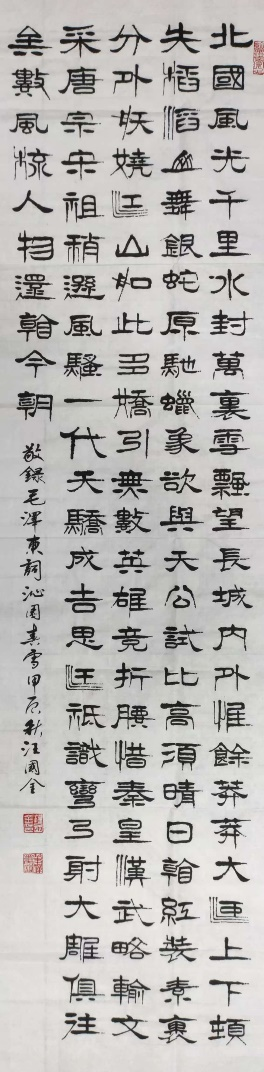 北國風光千里水封萬裏雪飄望長城內外惟餘莽莽大河上下頓
失滔滔山舞銀蛇原馳蠟象欲與天公試比高須晴日看紅裝素裹
分外妖嬈江山如此多嬌引無數英雄竞折腰惜秦皇漢武略輸文
采唐宗宋祖稍遜風騷一代天驕成吉思汗祗識彎弓射大雕俱往
矣數風流人物還看今朝
敬錄毛澤東詞沁園春雪甲辰秋汪國全